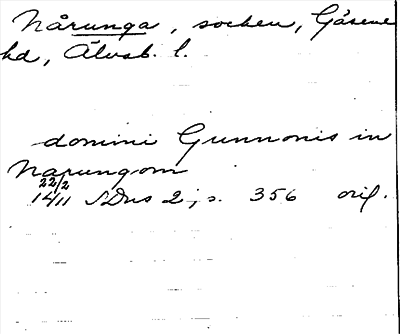 Nårunga, socken, Gäsene
hd, Älvsb. l.
domini Gunnonis in
Narungom
22/2
1411 SDns 2, s. 356 orig.